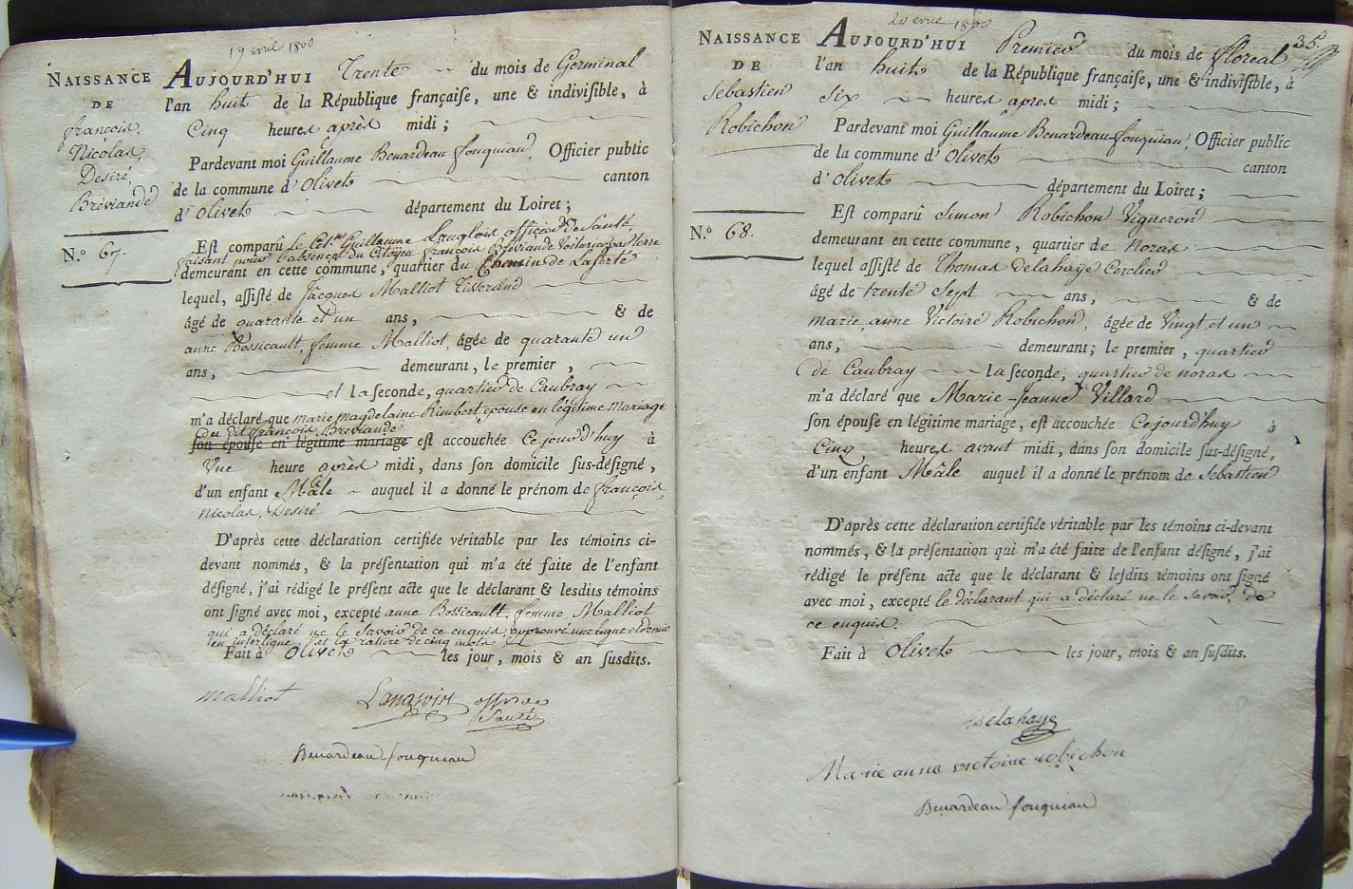 19 avril 1800
NAISSANCE
DE
françois,
Nicolas,
Desiré,
Bréviande
N.º 67.
AUJOURD'HUI Trente du mois de Germinal
l'an huit de la République françaiſe, une & indiviſible, à
Cinq heures après midi;
Pardevant moi Guillaume Benardeau fouquiau, Officier public
de la commune d'Olivet canton
d'Olivet département du Loiret;
Eſt comparû le Cit.en Guillaume Langlois officier de Santé
faisant pour l'absence du Citoyen françois Bréviande
demeurant en cette commune, quartier du Chemin de Laferté
lequel, aſſiſté de Jacques Malliot Tisserand
âgé de quarante et un ans, & de
anne Bossicault, femme Malliot, âgée de quarante un
ans, demeurant, le premier,
et la seconde, quartier de Caubray
m'a déclaré que marie magdelaine Rimbert épouse en légitime mariage
du dit françois Bréviande
ſon épouſe en légitime mariage eſt accouchée Ce jourd'huy à
Une heure après midi, dans ſon domicile ſus-déſigné,
d'un enfant Mâle auquel il a donné le prénom de françois,
Nicolas, Desiré
D'après cette déclaration certifiée véritable par les témoins ci-
devant nommés, & la préſentation qui m'a été faite de l'enfant
déſigné, j'ai rédigé le préſent acte que le déclarant & leſdits témoins
ont ſigné avec moi, excepté anne Bossicault, femme Malliot
qui a déclaré ne le savoir de ce enquis, approuvé une ligne et demie
en interligne et la rature de cinq mots
Fait à Olivet les jour, mois & an ſuſdits.
malliot Langlois officier
de Santé
Benardeau fouquiau
20 avril 1800
35
NAISSANCE
DE
Sebastien
Robichon
N.º 68.
AUJOURD'HUI Premier du mois de floreal
l'an huit de la République françaiſe, une & indiviſible, à
six heures après midi;
Pardevant moi Guillaume Benardeau fouquiau, Officier public
de la commune d'Olivet canton
d'Olivet département du Loiret;
Eſt comparû Simon Robichon Vigneron
demeurant en cette commune, quartier de noras
lequel aſſiſté de Thomas delahaye Cerclier
âgé de trente Sept ans, & de
marie anne Victoire Robichon, âgée de Vingt et un
ans, demeurant; le premier, quartier
de Caubray la seconde, quartier de noras
m'a déclaré que Marie-Jeanne Villard
ſon épouſe en légitime mariage, eſt accouchée Ce jourd'huy à
Cinq heures avant midi, dans ſon domicile ſus-déſigné,
d'un enfant Mâle auquel il a donné le prénom de Sebastien
D'après cette déclaration certifiée véritable par les témoins ci-devant
nommés, & la préſentation qui m'a été faite de l'enfant déſigné, j'ai
rédigé le préſent acte que le déclarant & leſdits témoins ont ſigné
avec moi, excepté le déclarant qui a déclaré ne le savoir, de
ce enquis.
Fait à Olivet les jour, mois & an ſuſdits.
Delahaye
Marie anne victoire robichon
Benardeau fouquiau